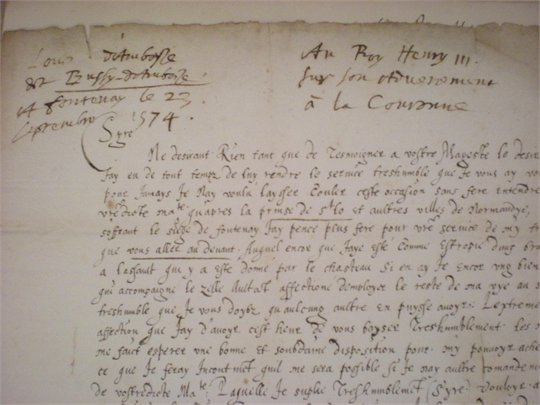 Louis d'Amboise
de Bussy-d'Amboise
A fontenay le 23
septembre 1574.
Au Roy Henry III
sur son advenement
à la Couronne
Syre
Ne desirant Rien tant que de Tesmoigner a vostre Mageste le desir
Jay eu de tout temps de luy rendre le service treshumble que Je vous ay
pour Jamays Je Nay voulu laysser Couler ceste occasion sans fere entendre
vredicte ma^te quapres la prinse de S^t Lo et aultres villes de Normandye,
soffrant le siege de fontenay Jay pence plus fere pour vre service de my
que vous allee au devant. Auquel encor que Jaye este Comme Estropie dung bras
a lassault qui y a este donne par le chasteau si en ay Je encor ung bien
qui accompaigne le zelle
affectione demployer le reste de ma vye au
treshumble que Je vous doybz quaulcung aultre en puysse avoyr. Lextreme
affection que Jay davoyr cest heur de vous bayser Treshumblement les
me faict esperer une bonne et soubdaine disposition pour my pouvoyr
ce que Je feray Incontinent quil me sera possible si Je nay aultre
de vostredicte Ma^te. Laquelle Je suplie Treshumblement (Syre) Vouloyr